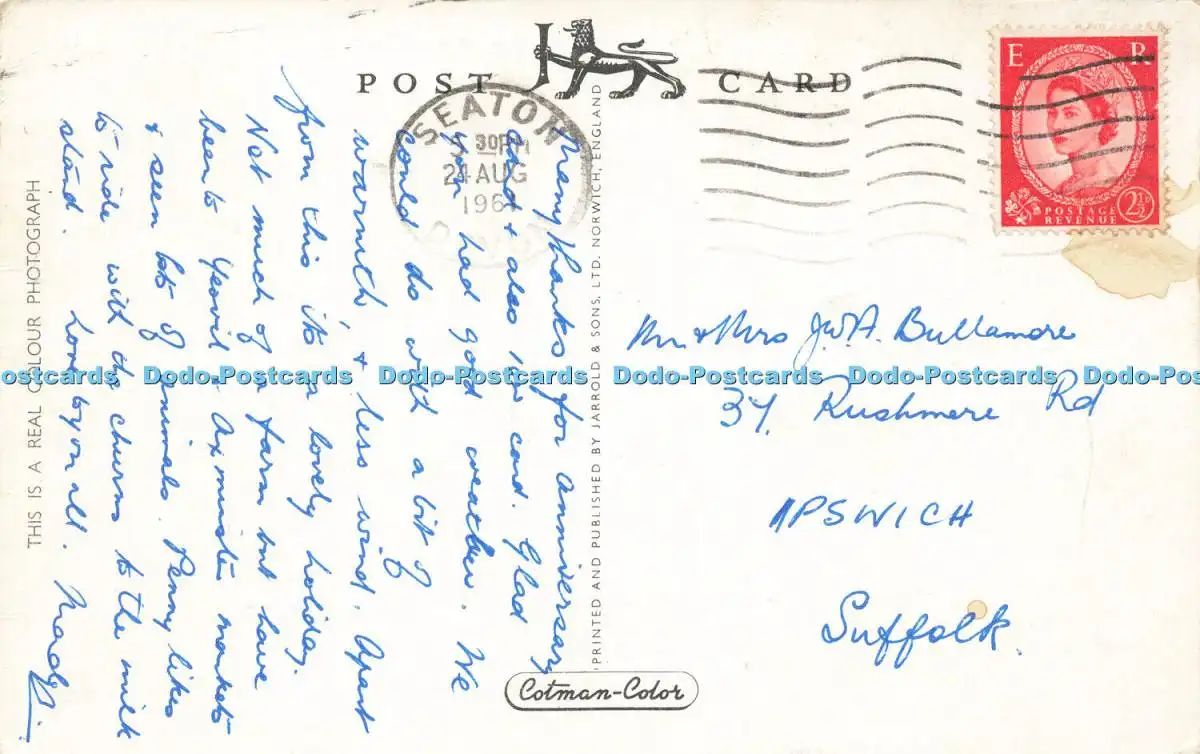 POST CARD
SEATON
30PM
24 AUG
196
E R
POSTAGE
REVENUE
2½D
Many thanks for anniversary
card & also IW card. Glad
you had good weather. We
could do with a bit of
warmth & less wind. Apart
from this it's a lovely holiday.
Not much of a farm but have
been to Yeovil & Axminster markets
& seen lots of animals. Penny likes
to ride with the churns to the milk
stand. Love to you all.
Mr & Mrs J.W.A. Bullamore
37, Rushmere Rd
IPSWICH
Suffolk.
THIS IS A REAL COLOUR PHOTOGRAPH
PRINTED AND PUBLISHED BY JARROLD & SONS, LTD. NORWICH, ENGLAND
Cotman-Color
Dodo-Postcards Dodo-Postcards Dodo-Postcards Dodo-Postcards Dodo-Postcards